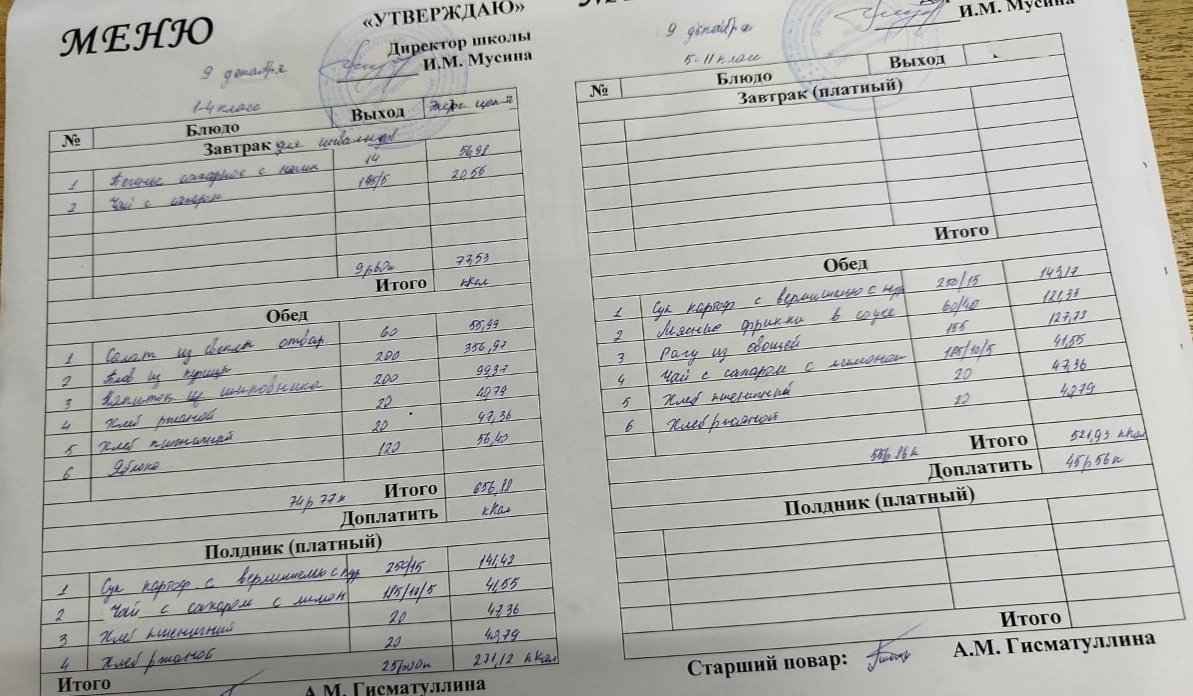 МЕНЮ
«УТВЕРЖДАЮ»
Директор школы
И.М. Мусина
9 декабря
1-4 класс
№ Блюдо Выход
Завтрак для инвалидов
1 Печенье сахарное с 14 56,98
2 Чай с сахаром 195/5 20,55
9р60к 77,53
Итого кКал
Обед
1 Салат из свеклы отвар 60 55,99
2 Плов из курицы 200 356,97
3 Напиток из шиповника 200 99,37
4 Хлеб ржаной 20 40,79
5 Хлеб пшеничный 20 47,36
6 Яблоко 120 56,40
74р 77к Итого 656,88
Доплатить кКал
Полдник (платный)
1 Суп картоф с вермишелью с кур 250/15 141,42
2 Чай с сахаром с лимон 185/10/5 41,55
3 Хлеб пшеничный 20 47,36
4 Хлеб ржаной 20 40,79
Итого 25р00к 271,12 кКал
А.М. Гисматуллина
И.М. Мусина
9 декабря
5-11 класс
№ Блюдо Выход
Завтрак (платный)
Итого
Обед
1 Суп картоф с вермишелью с кур 250/15 143,17
2 Мясные фрикки в соусе 60/40 121,33
3 Рагу из овощей 155 127,73
4 Чай с сахаром с лимоном 185/10/5 41,55
5 Хлеб пшеничный 20 47,36
6 Хлеб ржаной 20 40,79
Итого 521,93 кКал
Доплатить 45р 56к
Полдник (платный)
Итого
Старший повар: А.М. Гисматуллина